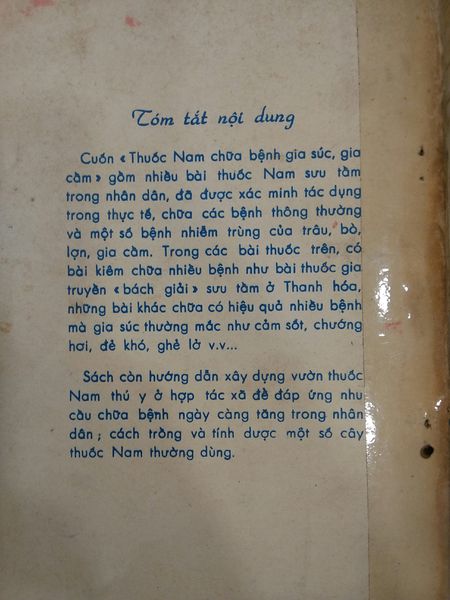 Tóm tắt nội dung
Cuốn « Thuốc Nam chữa bệnh gia súc, gia
cầm » gồm nhiều bài thuốc Nam sưu tầm
trong nhân dân, đã được xác minh tác dụng
trong thực tế, chữa các bệnh thông thường
và một số bệnh nhiễm trùng của trâu, bò,
lợn, gia cầm. Trong các bài thuốc trên, có
bài kiêm chữa nhiều bệnh như bài thuốc gia
truyền « bách giải » sưu tầm ở Thanh hóa,
những bài khác chữa có hiệu quả nhiều bệnh
mà gia súc thường mắc như cảm sốt, chướng
hơi, đẻ khó, ghẻ lở v.v...
Sách còn hướng dẫn xây dựng vườn thuốc
Nam thú y ở hợp tác xã để đáp ứng nhu
cầu chữa bệnh ngày càng tăng trong nhân
dân ; cách trồng và tính dược một số cây
thuốc Nam thường dùng.